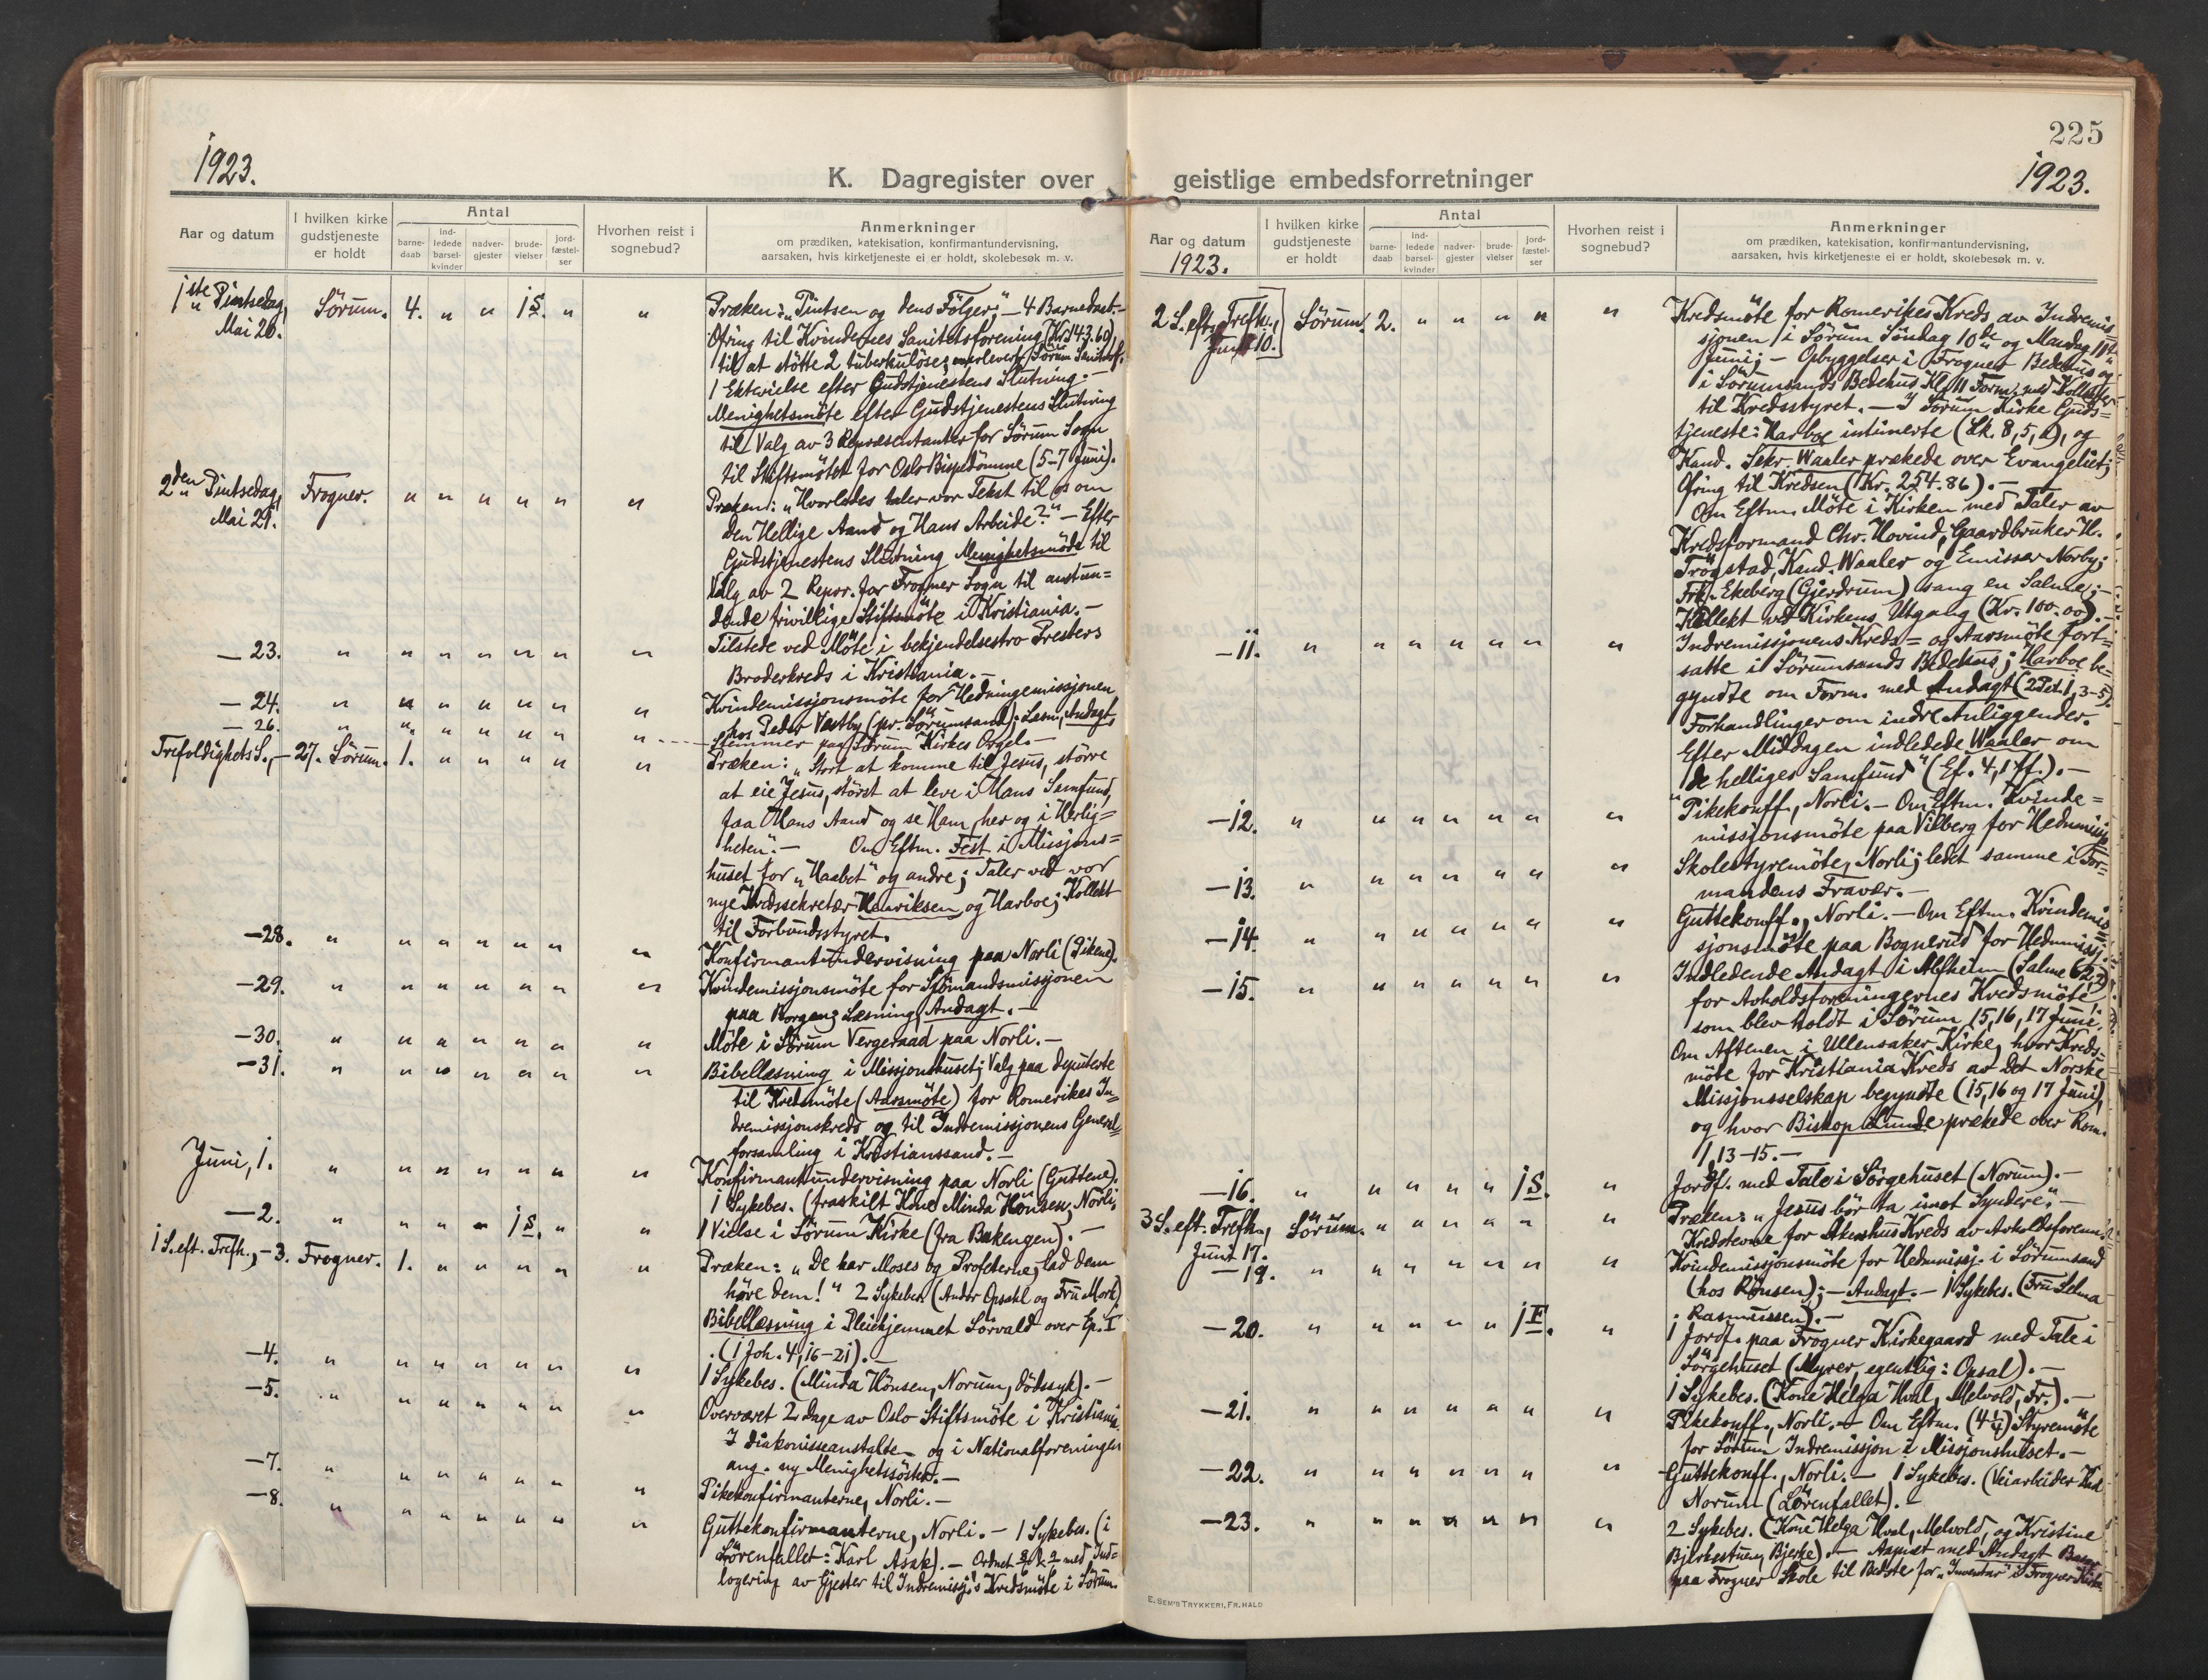 1923.
K. Dagregister over
Aar og datum
I hvilken kirke gudstjeneste er holdt
Antal
barne-daab
ind-ledede barsel-kvinder
nadver-gjester
brude-vielser
jord-fæstel-ser
Hvorhen reist i sognebud?
Anmerkninger
om prædiken, katekisation, konfirmantundervisning,
aarsaken, hvis kirketjeneste ei er holdt, skolebesøk m. v.
1ste Pintsedag, Mai 20. Sörum. 4. " " 1S. " "
Præken: "Pintsen og dens Fölger;" — 4 Barnedaab. —
Ofring til Kvindernes Sanitetsforening (Kr. 143.60),
til at stötte 2 tuberkulöse; overlevert Sörum Sanitetsf.
1 Ektevielse efter Gudstjenestens Slutning. —
Menighetsmöte efter Gudstjenestens Slutning
til Valg av 3 Representanter for Sörum Sogn
til Stiftsmötet for Oslo Bispedömme (5-7 Juni).
2den Pintsedag, Mai 21. Frogner. " " " " " "
Præken: "Hvorledes taler vor Tekst til os om
den Hellige Aand og Hans Arbeide?" — Efter
Gudstjenestens Slutning Menighetsmöde til
Valg av 2 Repr. for Frogner Sogn til anstun=
dende frivillige Stiftsmöte i Kristiania. —
— 23. " " " " " " "
Tilstede ved Möte i bekjendelsestro Presters
Broderkreds i Kristiania. —
— 24. " " " " " " "
Kvindemissjonsmöte for Hedningemissjonen
hos Peder Vestby (pr. Sörumsand); Læsn., Andagt,
— 26. " " " " " " "
Stemmer paa Sörum Kirkes Orgel. —
Trefoldighets S., — 27. Sörum. 1. " " " " "
Præken: "Stort at komme til Jesus, större
at eie Jesus, störst at leve i Hans Samfund,
faa Hans Aand og se Ham her og i Herlig=
heten". — Om Eftm. Fest i Missjons=
huset for "Haabet" og andre; Taler ved vor
nye Kredssekretær Henriksen og Harboe; Kollekt
til Forbundsstyret.
— 28. " " " " " " "
Konfirmantundervisning paa Norli (Pikene).
— 29. " " " " " " "
Kvindemissjonsmöte for Sjömandsmissjonen
paa Borgen; Læsning, Andagt. —
— 30. " " " " " " "
Möte i Sörum Vergeraad paa Norli. —
— 31. " " " " " " "
Bibellæsning i Missjonshuset; Valg paa deputerte
til Kredsmöte (Aarsmöte) for Romerikes In=
dremissjonskreds og til Indremissjonens General=
forsamling i Kristianssand. —
Juni, 1. " " " " " " "
Konfirmantundervisning paa Norli (Guttene).
1 Sykebes. (fraskilt Kone Minda Hönsen, Norli.
— 2. " " " " 1S. " "
1 Vielse i Sörum Kirke (fra Bakengen). —
1 S. eft. Trefh., — 3. Frogner. 1. " " " " "
Præken: "De har Moses og Profeterne, lad dem
höre dem!" 2 Sykebes. (Andor Opsahl og Fru Mork)
Bibellæsning i Pleiehjemmet Sörvald over Ep. I
(1 Joh. 4, 16-21). —
— 4. " " " " " " "
1 Sykebes. (Minda Hönsen, Norum, dödssyk). —
— 5. " " " " " " "
Overværet 2 Dage av Oslo Stiftsmöte i Kristiania.
I Diakonisseanstalten og i Nationalforeningen
ang. ny Menighetssöster. —
— 7. " " " " " " "
Pikekonfirmanterne, Norli. —
— 8. " " " " " " "
Guttekonfirmanterne, Norli. — 1 Sykebes. (i
Lörenfallet: Karl Asak). — Ordnet med Ind=
logering av Gjester til Indremissj's Kredsmöte i Sörum.
225
1923.
geistlige embedsforretninger
Aar og datum
1923.
I hvilken kirke gudstjeneste er holdt
Antal
barne-daab
ind-ledede barsel-kvinder
nadver-gjester
brude-vielser
jord-fæstel-ser
Hvorhen reist i sognebud?
Anmerkninger
om prædiken, katekisation, konfirmantundervisning,
aarsaken, hvis kirketjeneste ei er holdt, skolebesøk m. v.
2 S. eft. Trefh., Juni 10. Sörum. 2. " " " " "
Kredsmöte for Romerikes Kreds av Indremis
sjonen i Sörum Söndag 10de og Mandag 11te
Juni; — Opbyggelser i Frogner Bedehus og
i Sörumsands Bedehus Kl. 11 Form. med Kollekter
til Kredsstyret. — I Sörum Kirke Guds=
tjeneste: Harboe intimerte (Lk. 8, 5, a), og
Kand. Sekr. Waaler prækede over Evangeliet;
Ofring til Kredsen (Kr. 254.86). —
Om Eftm. Möte i Kirken med Taler av
Kredsformand Chr. Hovind, Gaardbruker H.
Trögstad, Kand. Waaler og Emissær Norby;
Frk. Ekeberg (Gjerdrum) sang en Salme; —
Kollekt ved Kirkens Utgang (Kr. 100.00). —
— 11. " " " " " " "
Indremissjonens Kreds= og Aarsmöte fort=
satte i Sörumsands Bedehus; Harboe be=
gyndte om Form. med Andagt (2 Pet. 1, 3-5).
Forhandlinger om indre Anliggender.
Efter Middagen indledede Waaler om
"De helliges Samfund" (Ef. 4, 1 ff.). —
— 12. " " " " " " "
Pikekonff., Norli. — Om Eftm. Kvinde=
missjonsmöte paa Vilberg for Hednmissj
— 13. " " " " " " "
Skolestyremöte, Norli; ledet samme i For=
mandens Fravær. —
— 14. " " " " " " "
Guttekonff., Norli. — Om Eftm. Kvindemis
sjonsmöte paa Bognerud for Hednmissj.
— 15. " " " " " " "
Indledende Andagt i Alfheim (Salme 62,
for Avholdsforeningernes Kredsmöte,
som blev holdt i Sörum 15, 16, 17 Juni.
Om Aftenen i Ullensaker Kirke, hvor Kreds=
möte for Kristiania Kreds av Det Norske
Missjonsselskap begyndte (15, 16 og 17 Juni),
og hvor Biskop Lunde prækede over Rom.
1, 13-15. —
— 16. " " " " " 1S. "
Jordf. med Tale i Sörgehuset (Norum). —
3 S. eft. Trefh., Juni 17. Sörum. " " " " " "
Præken: "Jesus bör ta imot Syndere". —
Kredstevne for Akershus Kreds av Avholdsforenn.
— 19. " " " " " " "
Kvindemissjonsmöte for Hedmissj. i Sörumsand
(hos Rönsen); — Andagt. — 1 Sykebes. (Fru Selma
Rasmussen). —
— 20. " " " " " 1F. "
1 Jordf. paa Frogner Kirkegaard med Tale i
Sörgehuset (Myrer, egentlig: Opsal). —
1 Sykebes. (Kone Helga Hval, Melvold, Fr.). —
— 21. " " " " " " "
Pikekonff., Norli. — Om Eftm. (4¼) Styremöte
for Sörum Indremissjon i Missjonshuset. —
— 22. " " " " " " "
Guttekonff., Norli. — 1 Sykebes. (Veiarbeider
Norum (Lörenfallet). —
— 23. " " " " " " "
2 Sykebes. (Kone Helga Hval, Melvold, og Kristine
Bjerkestuen, Bjerke). — Aapnet med Andagt Basar
paa Frogner Skole til Bedste for "Inventar" i Frogner Kirke
E. SEM'S TRYKKERI, FR.HALD